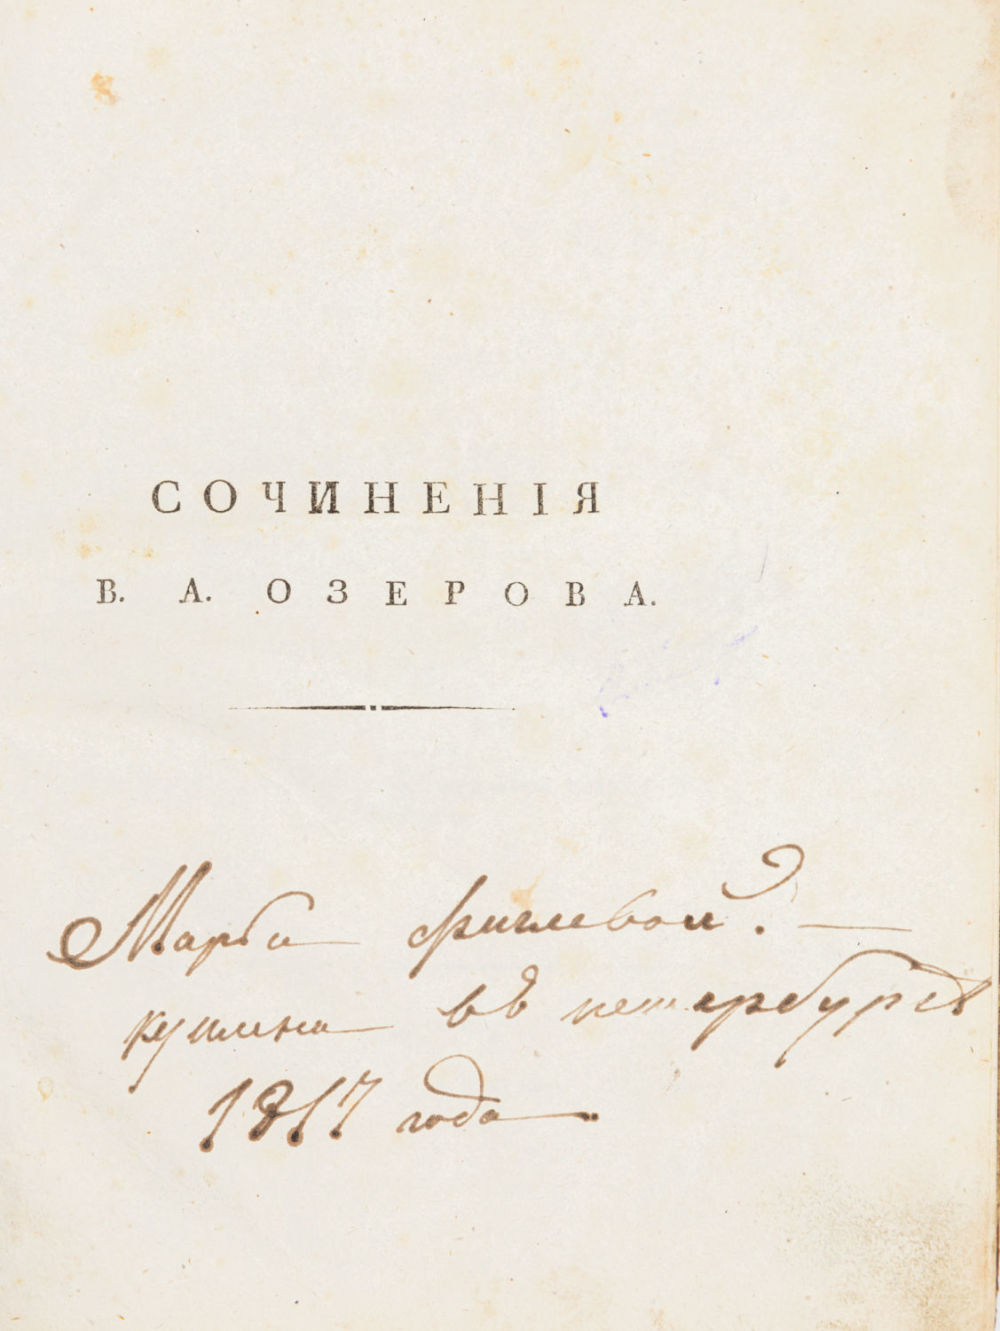 СОЧИНЕНІЯ
В. А. ОЗЕРОВА.
куплена въ петербурге
1817 года